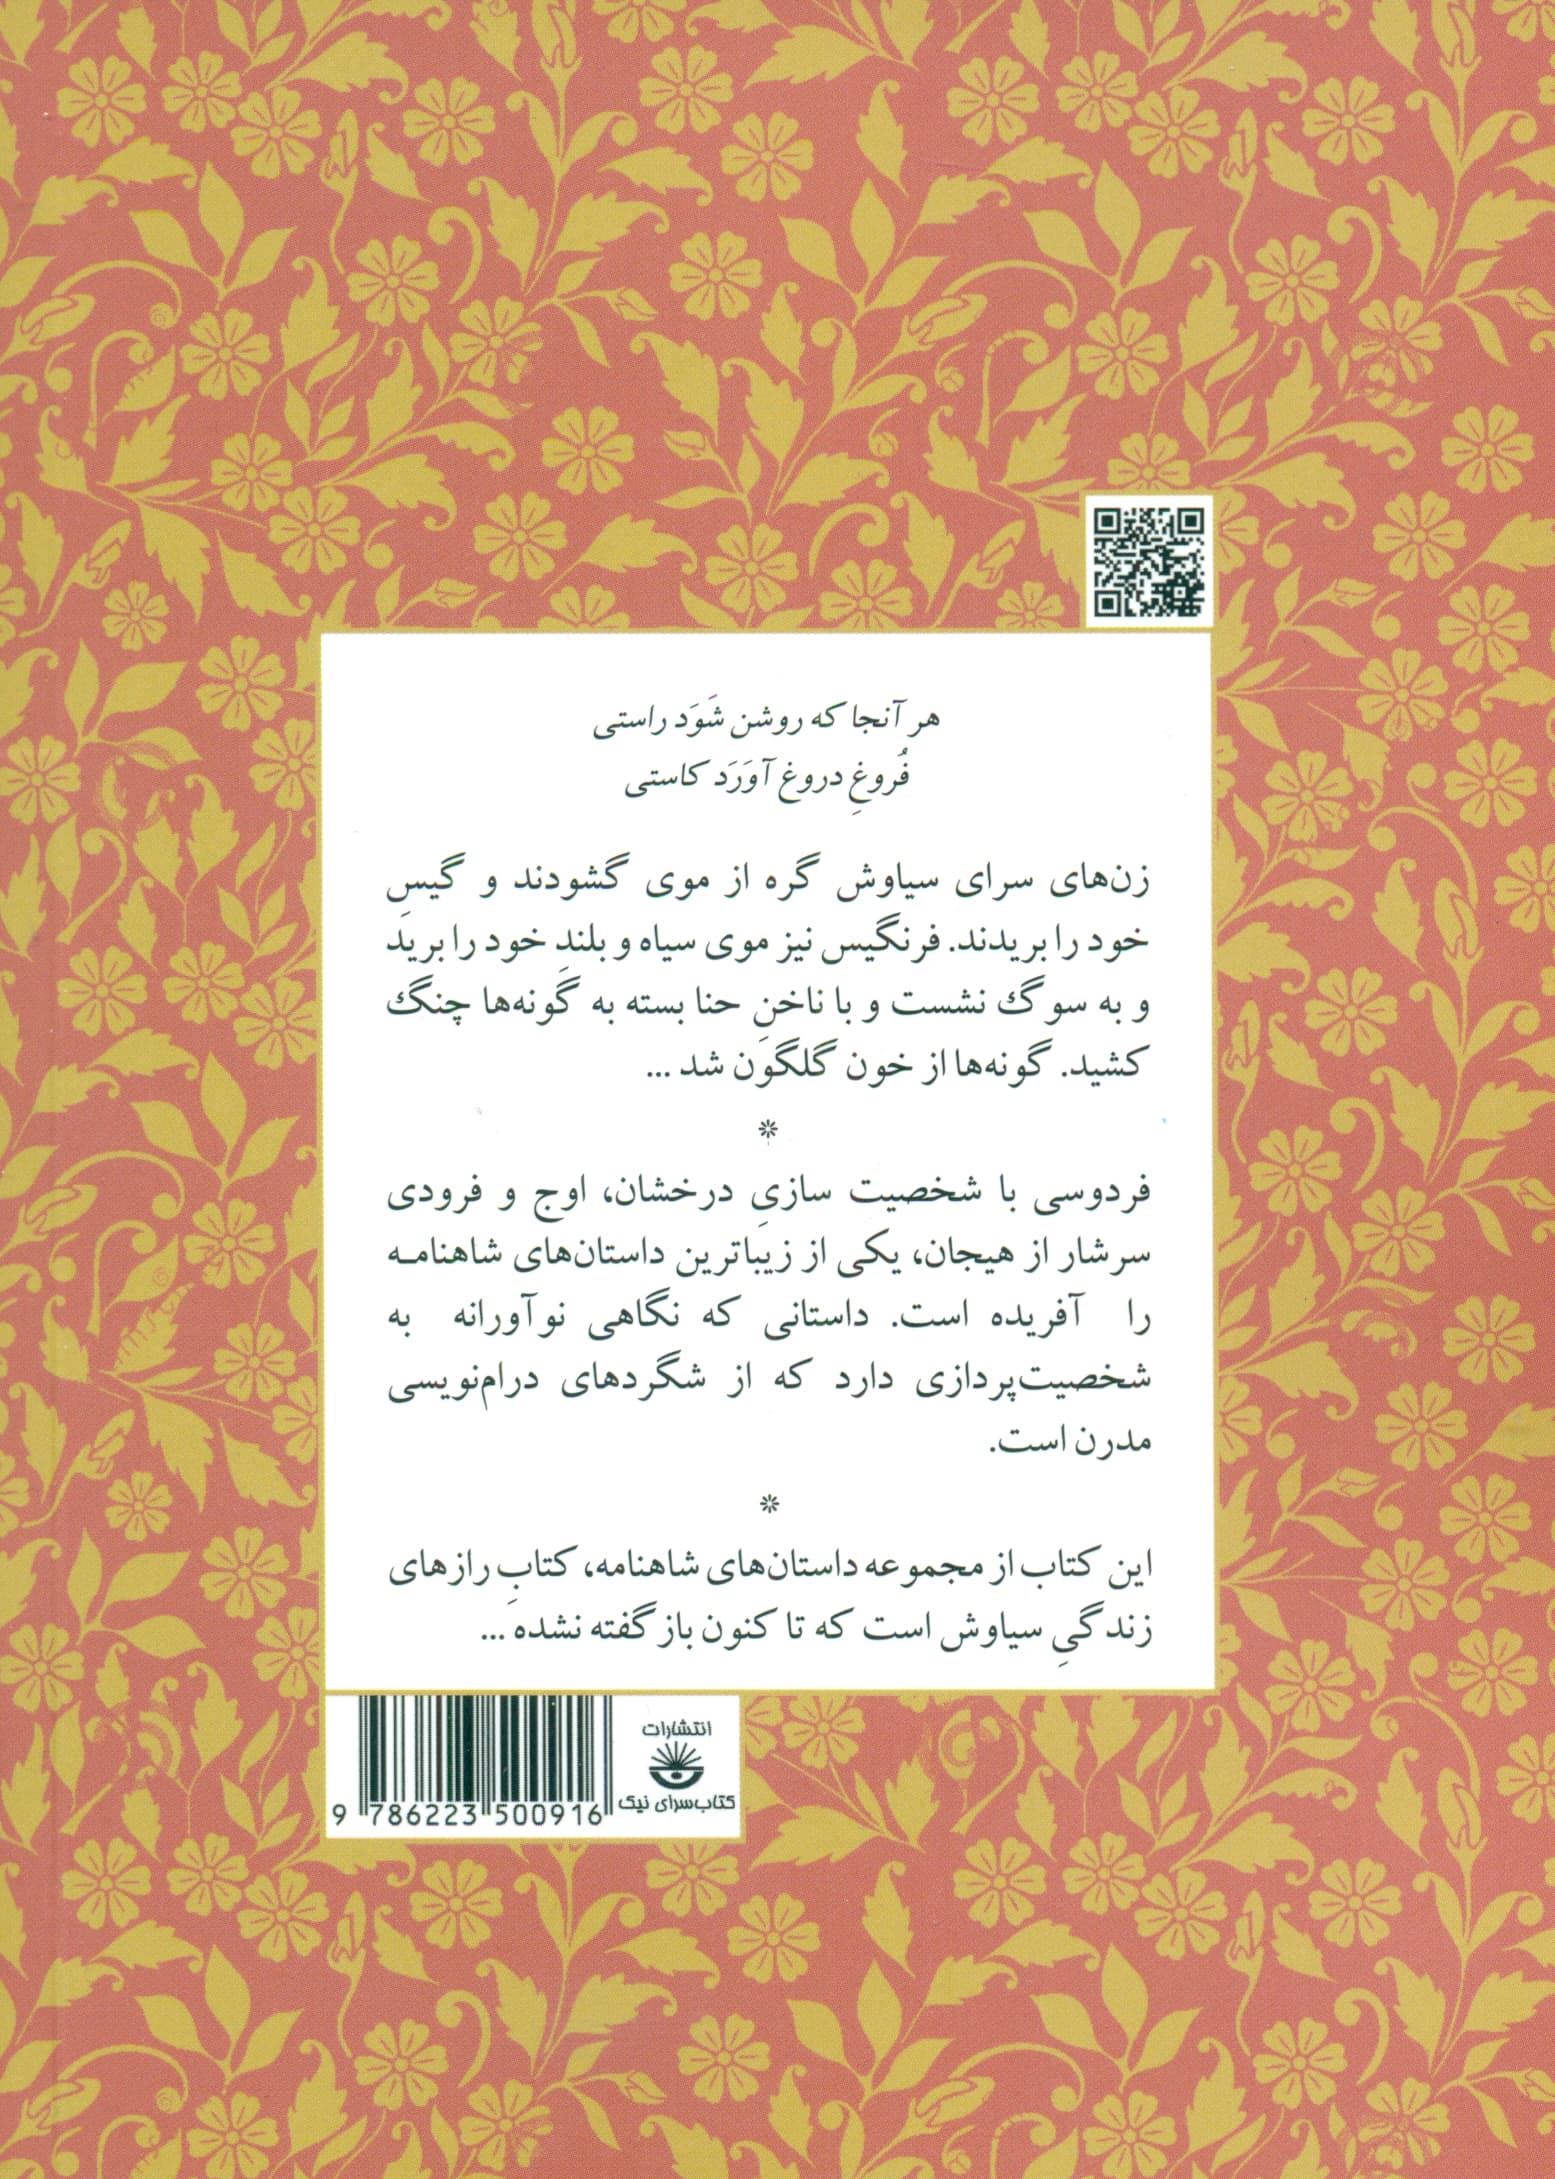 هر آنجا که روشن شَوَد راستی
فُروغِ دروغ آوَرَد کاستی
زن‌های سرای سیاوش گره از موی گشودند و گیسِ
خود را بریدند. فرنگیس نیز موی سیاه و بلندِ خود را برید
و به سوگ نشست و با ناخنِ حنا بسته به گونه‌ها چنگ
کشید. گونه‌ها از خون گلگون شد ...
*
فردوسی با شخصیت سازیِ درخشان، اوج و فرودی
سرشار از هیجان، یکی از زیباترین داستان‌های شاهنامه
را آفریده است. داستانی که نگاهی نوآورانه به
شخصیت‌پردازی دارد که از شگردهای درام‌نویسی
مدرن است.
*
این کتاب از مجموعه داستان‌های شاهنامه، کتابِ رازهای
زندگیِ سیاوش است که تا کنون بازگفته نشده ...
انتشارات
کتاب‌سرای نیک
9 786223 500916